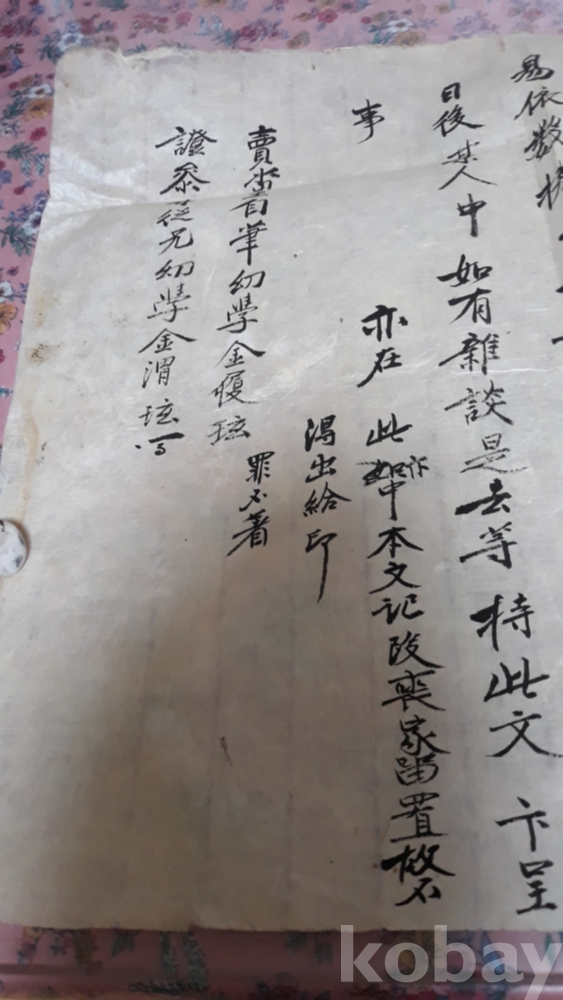 易依數
日後某人中如有雜談是去等持此文卞呈
事
亦在此中本文記段喪家留置故不
得出給印
賣畓筆幼學金 玹
罪不着
證參從兄幼學金渭玹
kobay